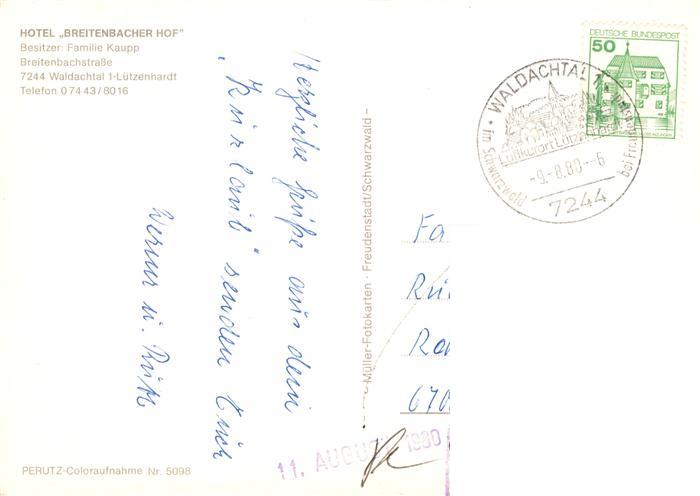 HOTEL „BREITENBACHER HOF"
Besitzer: Familie Kaupp
Breitenbachstraße
7244 Waldachtal 1-Lützenhardt
Telefon 0 74 43 / 8016
Herzliche Grüße aus dem
„Kurlaub" senden Euch
Werner u. Ruth
PERUTZ-Coloraufnahme Nr. 5098
Müller-Fotokarten · Freudenstadt/Schwarzwald –
11. AUGUST 1980
DEUTSCHE BUNDESPOST
50
WALDACHTAL 1
Luftkurort Lützenhardt
-9.-8.80--6
im Schwarzwald
bei
7244
Fa
Rui
Ra
670